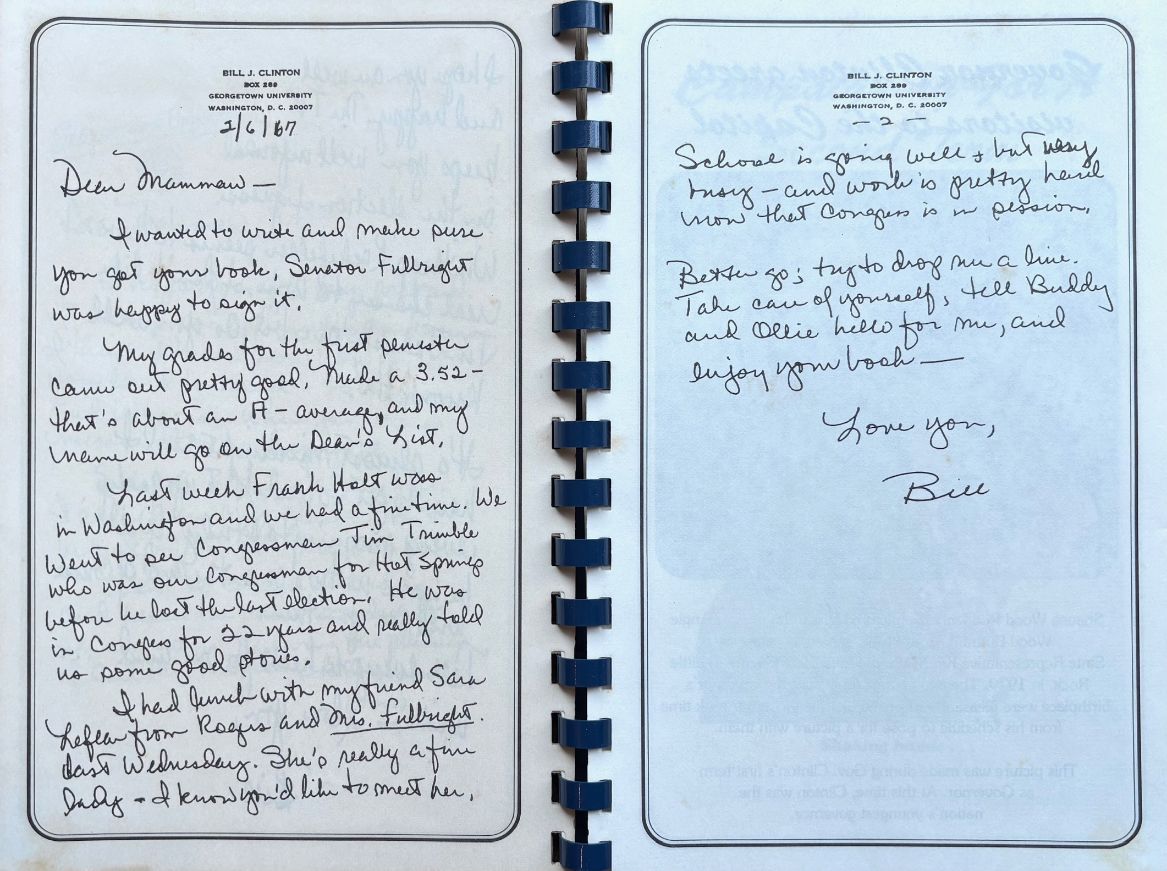 BILL J. CLINTON
BOX 289
GEORGETOWN UNIVERSITY
WASHINGTON, D. C. 20007
2/6/67
Dear Mammaw —
I wanted to write and make sure
you got your book. Senator Fulbright
was happy to sign it.
My grades for the first semester
came out pretty good. Made a 3.52 –
that's about an A – average, and my
name will go on the Dean's List.
Last week Frank Holt was
in Washington and we had a fine time. We
went to see Congressman Jim Trimble
who was our Congressman for Hot Springs
before he lost the last election. He was
in Congress for 22 years and really told
us some good stories.
I had lunch with my friend Sara
Leflar from Rogers and Mrs. Fulbright.
last Wednesday. She's really a fine
lady – I know you'd like to meet her.
BILL J. CLINTON
BOX 289
GEORGETOWN UNIVERSITY
WASHINGTON, D. C. 20007
— 2 —
School is going well + but very
busy – and work is pretty hard
now that Congress is in session.
Better go; try to drop me a line.
Take care of yourself, tell Buddy
and Ollie hello for me, and
enjoy your book —
Love you,
Bill